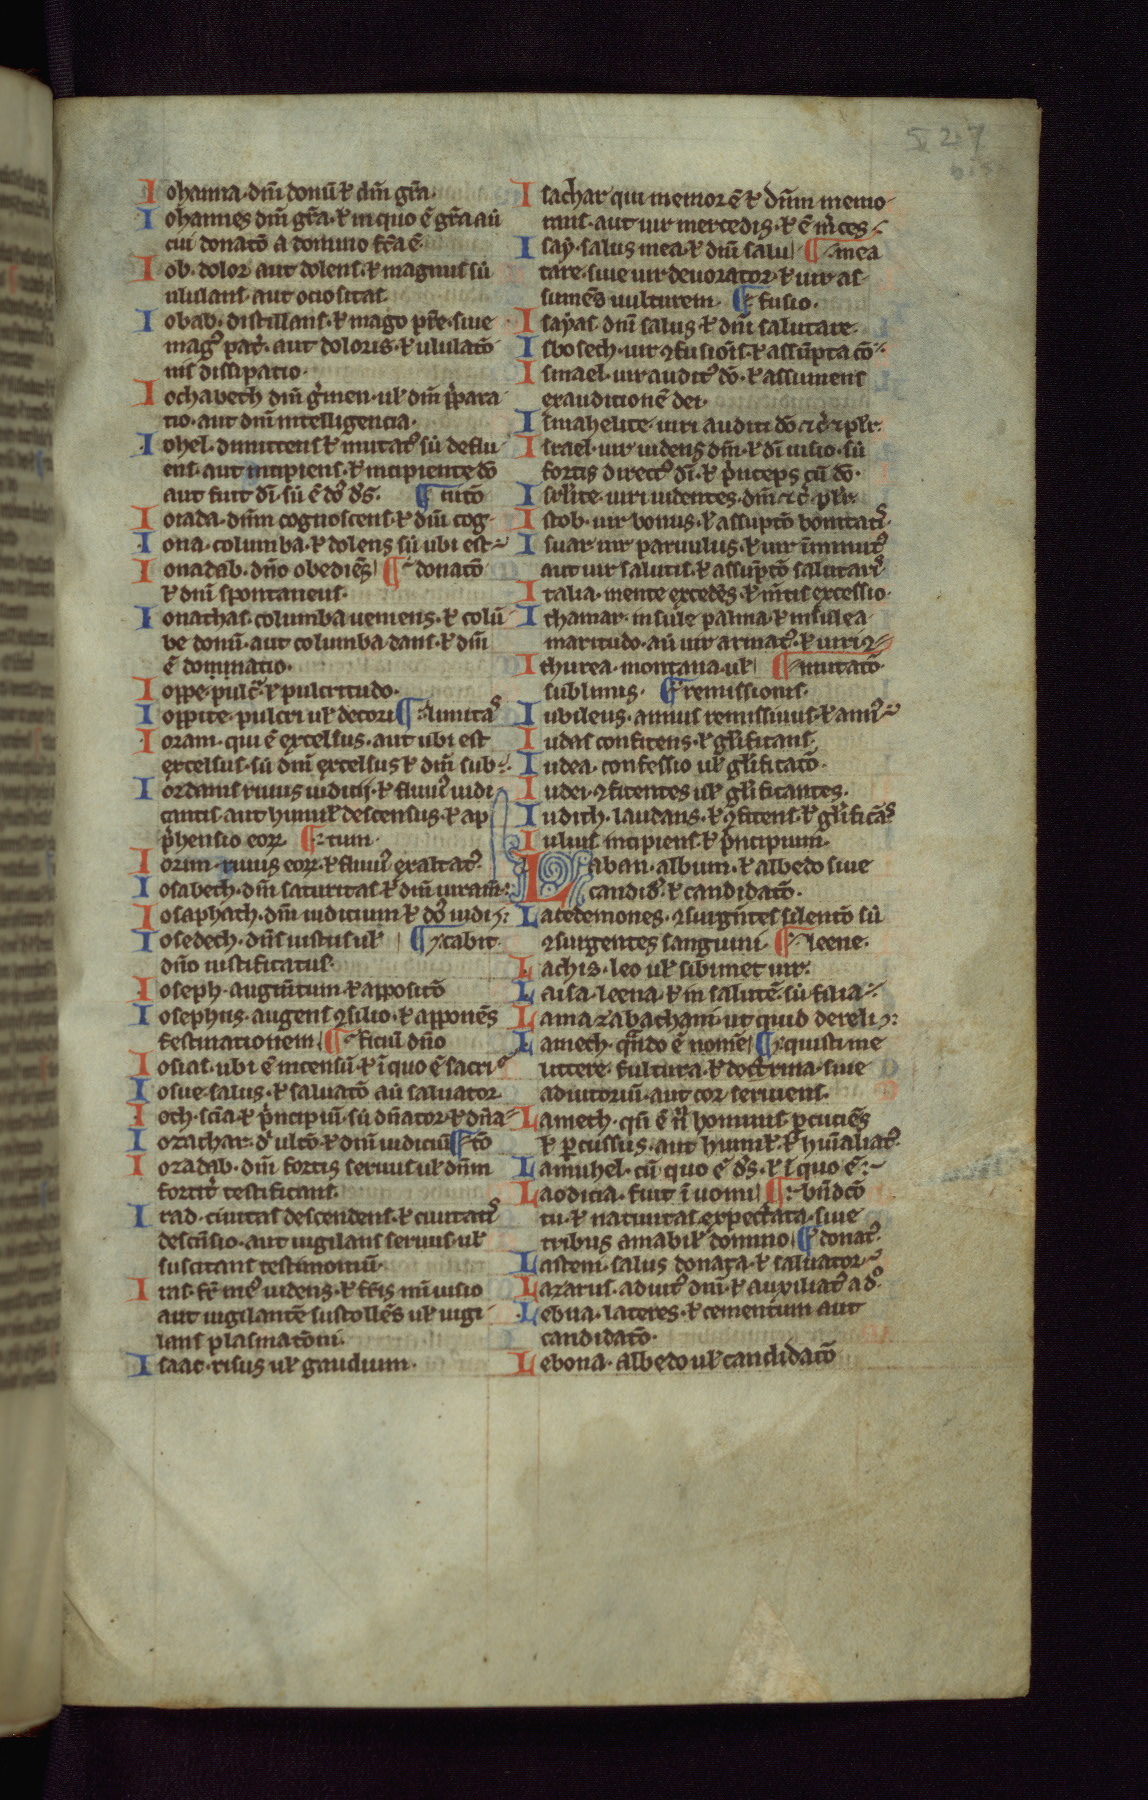 527
Iohanna. dnī donū ⁊ dnī gr̄a.
Iohannes dnī gr̄a. ⁊ in quo ē gr̄a aū
cui donatō a domino fc̄a ē
Iob. dolor aut dolens. ⁊ magnus sū
ululans aut ociositas.
Iobab. distillans. ⁊ mago pr̄e. siue
mag᷒ pat̄. aut doloris. ⁊ ululatō
nis dissipatio.
Iochabech dnī g̓men. ul̄ dnī p̄para
tio. aut dnī intelligencia.
Iohel. dimittens ⁊ mutat᷒ sū deflu
ens. aut incipiens. ⁊ incipiente dō
aut fuit dī. sū ē do᷒ ds̄. ¶ nitō
Ioiada. dnm̄ cognoscens ⁊ dnī cog-
Iona. columba. ⁊ dolens sū ubi est
Ionadab. dn̄o obediēs ¶ donatō
⁊ dnī spontaneus.
Ionathas. columba ueniens. ⁊ colū
be donū. aut columba dans. ⁊ dnī
ē dominatio.
Ioppe. pulc̄. ⁊ pulcritudo.
Ioppite. pulcri ul̄ decori ¶ limitas
Ioram. qui ē excelsus. aut ubi est
excelsus. sū dnī excelsus ⁊ dnī sub-
Iordanis riuus iudicij. ⁊ fluui᷒ iudi
cantis. aut humil̄ descensus. ⁊ ap
p̄hensio eoꝝ ¶ tum.
Iorim. riuus eoꝝ. ⁊ fluui᷒ exaltat᷒.
Iosabech. dnī saturitas ⁊ dnī iuram̄
Iosaphath. dnī iudicium ⁊ do᷒ iudi
Iosedech. dnī iustus ul̄ ¶ cabit
dn̄o iustificatus.
Ioseph. augm̄tum ⁊ appositō
Iosephus. augens ꝯsilio. ⁊ apponēs
festinationem ¶ ficiū dn̄o
Iosias. ubi ē incensū. ⁊ ī quo ē sacri
Iosue. salus. ⁊ saluatō aū saluator
Ioth. sc̄ia. ⁊ p̄ncipiū. sū dn̄ator. ⁊ dn̄a
Iozachar. d̓ ultō. ⁊ dnī iudiciū ¶ tō
Iozadab. dnī fortis seruus ul̄ dnm̄
fortit̓ testificans.
Irad. ciuitas descendens. ⁊ ciuitat᷒
descn̄sio. aut uigilans seruus. ul̄
suscitans testimoniū.
Iras. fr̄ me᷒ uidens. ⁊ fr̄is mī uisio
aut uigilantē sustollēs ul̄ uigi
lans plasmatōni.
Isaac. risus ul̄ gaudium.
Isachar qui memor ē ⁊ dnm̄ memo-
rans. aut uir mercedis. ⁊ ē m̓ces
Isay. salus mea. ⁊ dnī salu ¶ mea
tare. siue uir deuorator. ⁊ uir as
sumēs uulturem. ¶ fusio.
Isayas. dnī salus. ⁊ dnī salutare.
Isbosech. uir ꝯfusiōis. ⁊ assūpta cō
Ismael. uir audit᷒ dō. ⁊ assumens
exauditionē dei.
Ismahelite. uiri auditi dō ⁊ c̄
Israel. uir uidens dm̄. ⁊ dī uisio. sū
fortis direct᷒ dī. ⁊ p̄nceps cū dō.
Isrl̄ite. uiri uidentes. dm̄ ⁊ c̄
Istob. uir bonus. ⁊ assuptō bonitat᷒.
Isuar. uir paruulus. ⁊ uir īminut᷒
aut uir salutis. ⁊ assūptō salutar᷒
Italia. mente excedēs. ⁊ m̄tis excessio.
Ithamar. insule palma. ⁊ insule a
maritudo. aū uir armat᷒. ⁊ uiri
Ithurea. montana. ul̄ ¶ mutatō
sublimis. ¶ remissionis.
Iubileus. annus remissiuus. ⁊ ann᷒
Iudas confitens. ⁊ gl̄ificans.
Iudea. confessio ul̄ gl̄ificatō.
Iudei. ꝯfitentes ul̄ gl̄ificantes.
Iudich. laudans. ⁊ ꝯfitens. ⁊ gl̄ificās
Iulius. incipiens. ⁊ p̄ncipium.
Laban. album. ⁊ albedo siue
candid᷒. ⁊ candidatō.
Lacedemones. ꝯsurgn̄tes silentō sū
ꝯsurgentes sanguini ¶ leene.
Lachis. leo ul̄ sibimet uir.
Laisa. leena. ⁊ in salutē. sū filia
Lama zabachani. ut quid dereli
Lamech. qn̄do ē nomē ¶ quisti me
uttere. fultura. ⁊ doctrina. siue
adiutoriū. aut cor seruiens.
Lamech. qn̄ ē n̄ hominis p̄cuciēs
⁊ p̄cussus. aut humil̄ ⁊ hūialiat᷒
Lamuhel. cū quo ē ds̄. ⁊ ī quo ē
Laodicia. fuit ī uomi ¶ bn̄dcō
tu. ⁊ natiuitas expectata. siue
tribus amabil̄ domino ¶ donat᷒
Lasteni. salus donata. ⁊ saluator
Lazarus. adiut᷒ dnī. ⁊ auxiliat᷒ a do᷒
Lebna. lateres. ⁊ cementum aut
candidatō.
Lebona. albedo ul̄ candidatō